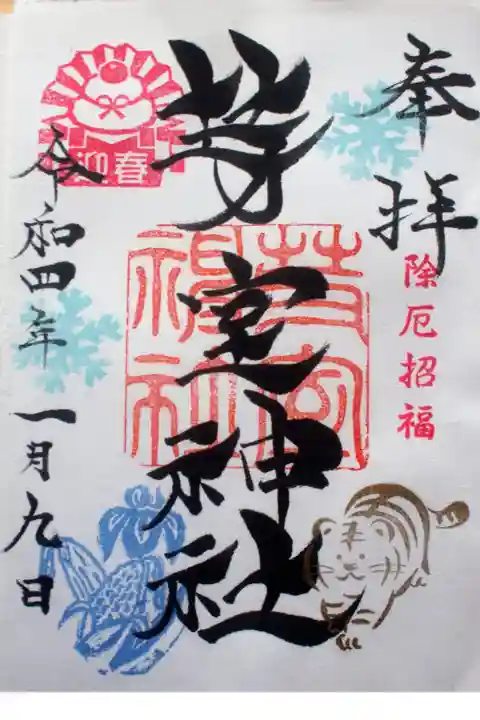 奉拝
除厄招福
芽室神社
芽室
神社
迎春
令和四年一月九日